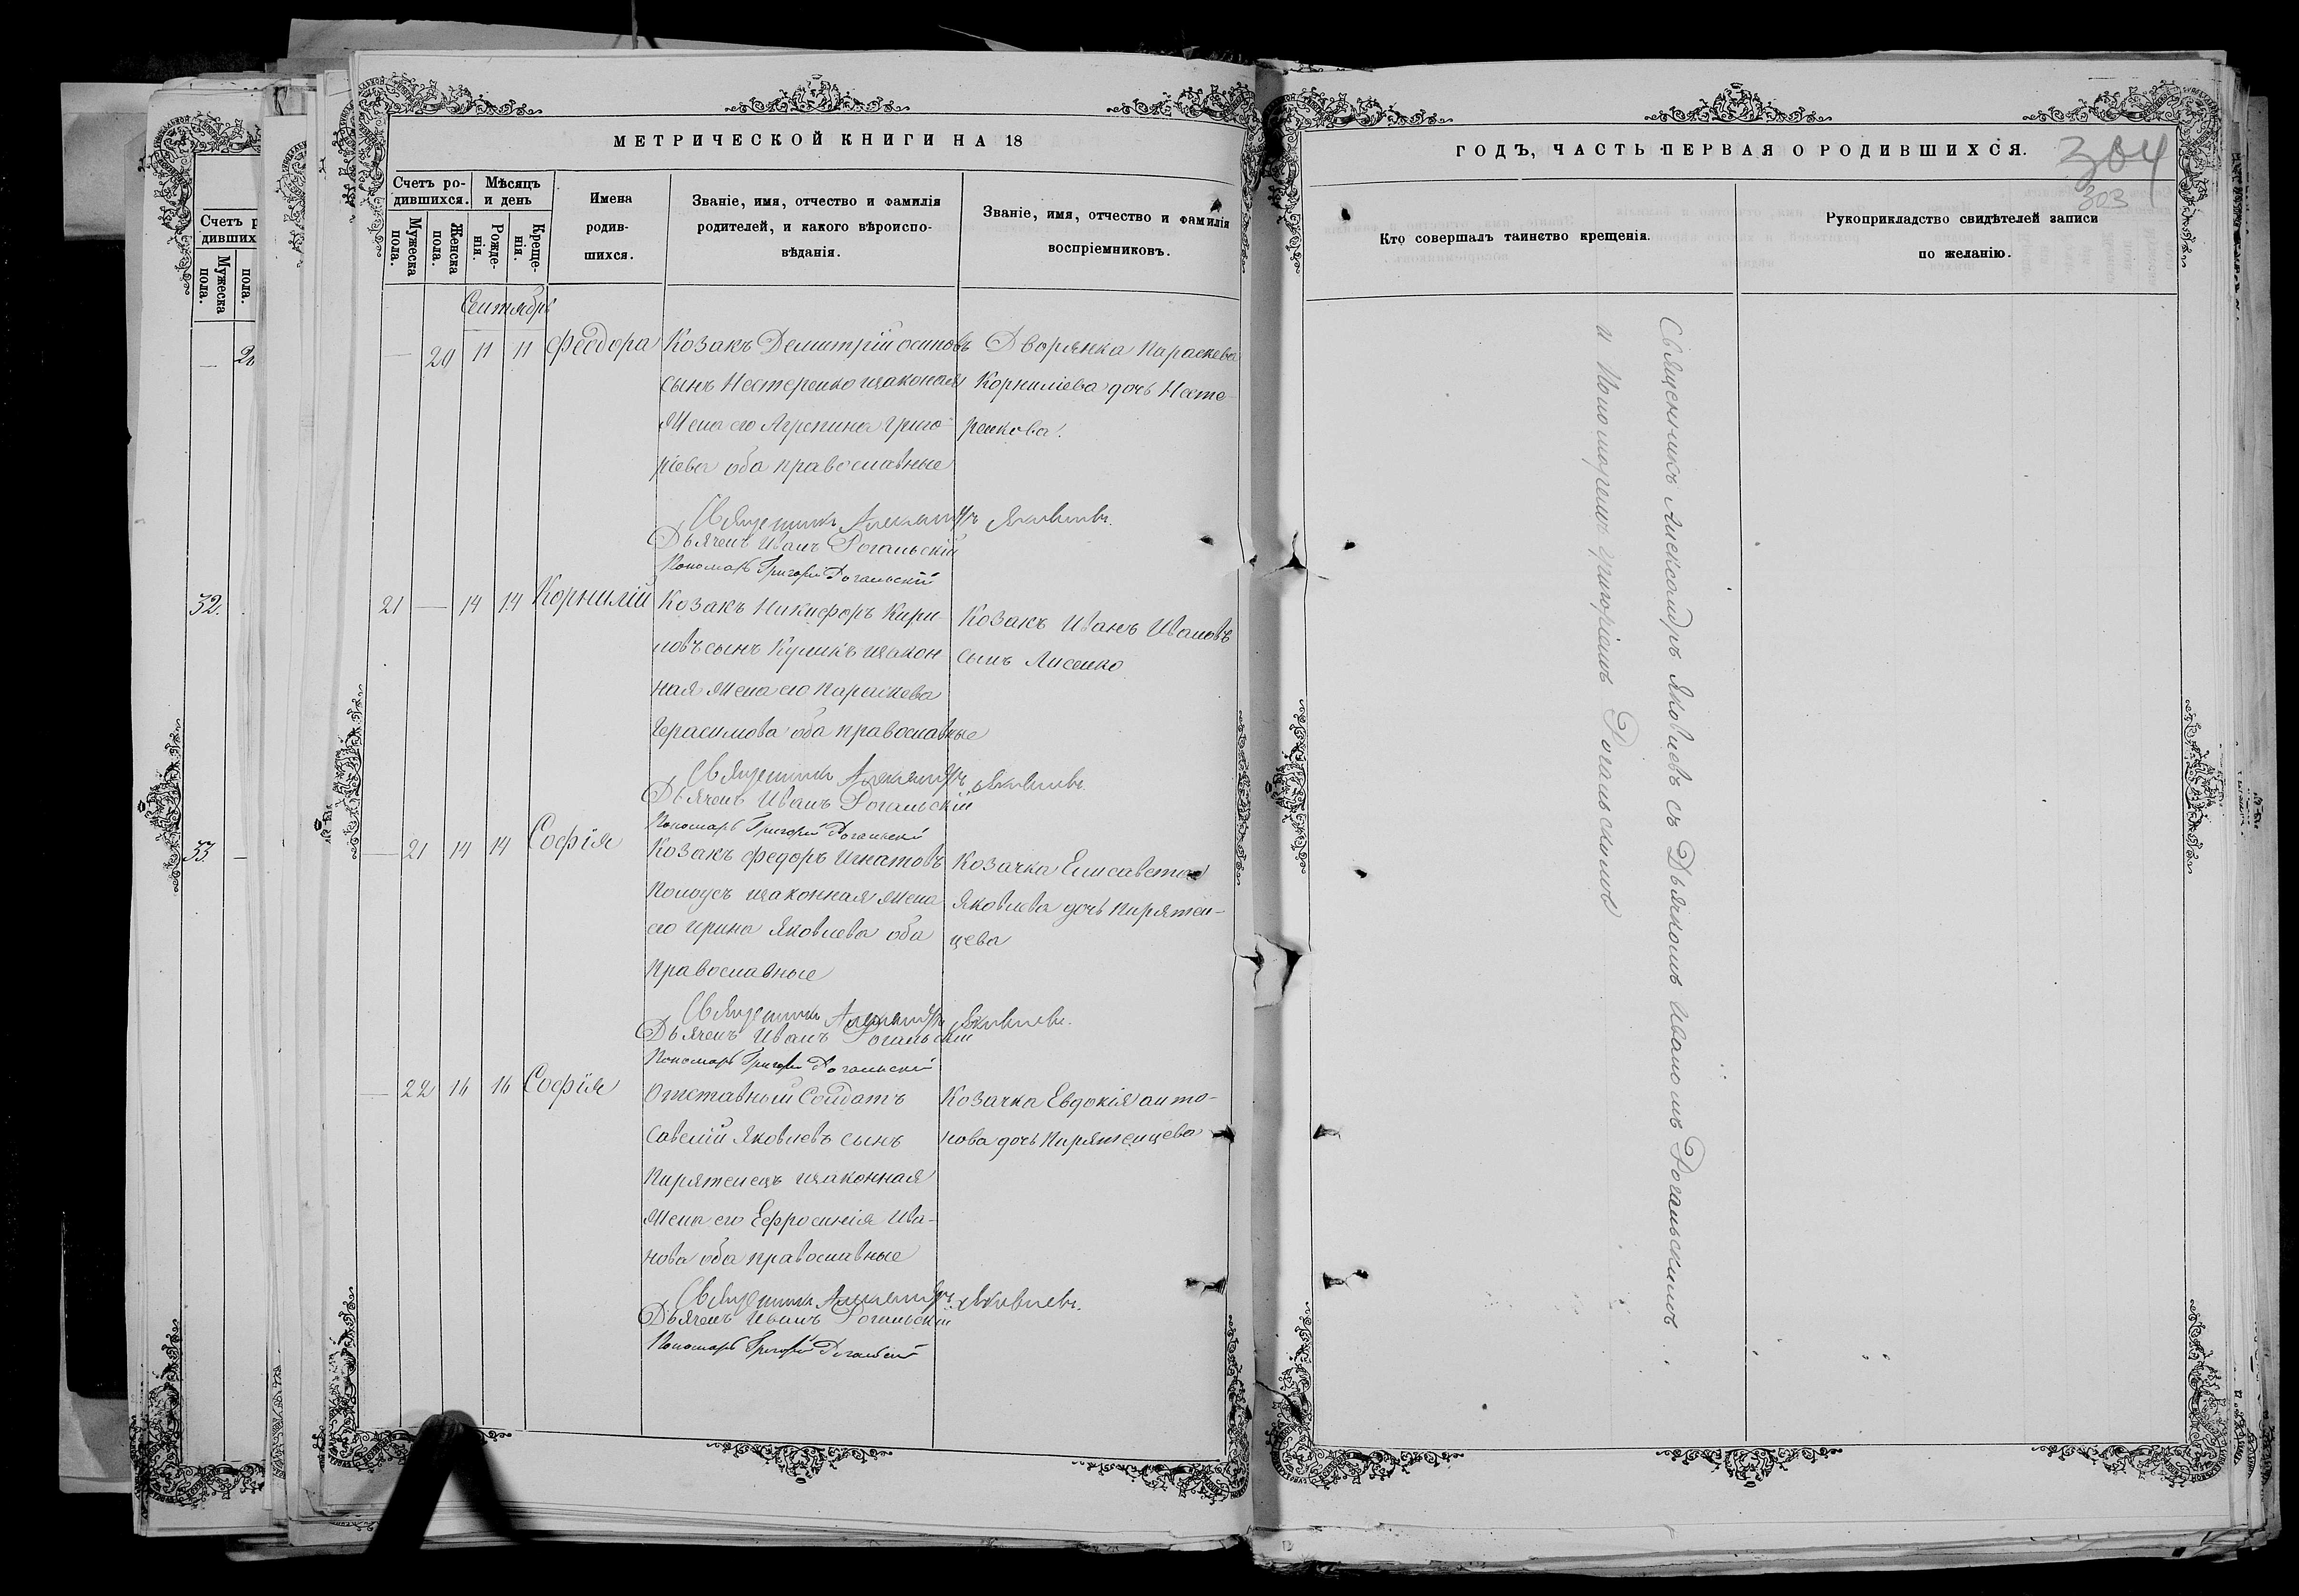 МЕТРИЧЕСКОЙ КНИГИ НА 18
Счетъ ро-
дившихся.
Мѣсяцъ
и день
Мужеска
пола.
Женска
пола.
Рожде-
нія.
Креще-
нія.
Имена
родив-
шихся.
Званіе, имя, отчество и фамилія
родителей, и какого вѣроиспо-
вѣданія.
Званіе, имя, отчество и фамилія
воспріемниковъ.
Сентябрь
— 20 11 11 Феодора
Козакъ Демитрій осиповъ
сынъ Нестеренко изаконая
Жена его Агрепина Григо-
ріева оба православные
Дворянка Параскева
Корниліева дочь Несте-
ренкова.
Священникъ Александръ Яковлевъ.
Дьячекъ Иванъ Рогальскій
Пономарь Григорій Рогальскій
21 — 14 14 Корнилій
Козакъ Никифоръ Кири-
ловъ сынъ Куликъ изакон
ная Жена его Параскева
Герасимова оба православные
Козакъ Иванъ Ивановъ
сынъ Лисенко
Священникъ Александръ Яковлевъ.
Дьячекъ Иванъ Рогальскій
Пономарь Григорій Рогальскій
— 21 14 14 Софія
Козакъ Федоръ Игнатовъ
изаконная Жена
его Ирина Яковлева оба
православные
Козачка Елисавета
Яковлева дочь Пирятен-
цева
Священникъ Александръ Яковлевъ.
Дьячекъ Иванъ Рогальскій
Пономарь Григорій Рогальскій
— 22 16 16 Софія
Отставный Солдатъ
Савелій Яковлевъ сынъ
Пирятенецъ изаконная
Жена его Ефросинія Ива-
нова оба православные
Козачка Евдокія анто-
нова дочь Пирятенцева
Священникъ Александръ Яковлевъ.
Дьячекъ Иванъ Рогальскій
Пономарь Григорій Рогальскій
ГОДЪ, ЧАСТЬ ПЕРВАЯ О РОДИВШИХСЯ.
304
303
Кто совершалъ таинство крещенія.
Рукоприкладство свидѣтелей записи
по желанію.
Священникъ Александръ Яковлевъ съ Дьячкомъ Иваномъ Рогальскимъ
и Пономаремъ Григоріемъ Рогальскимъ
Счетъ р
дивших
Мужеска
пола.
пола.
32.
33.